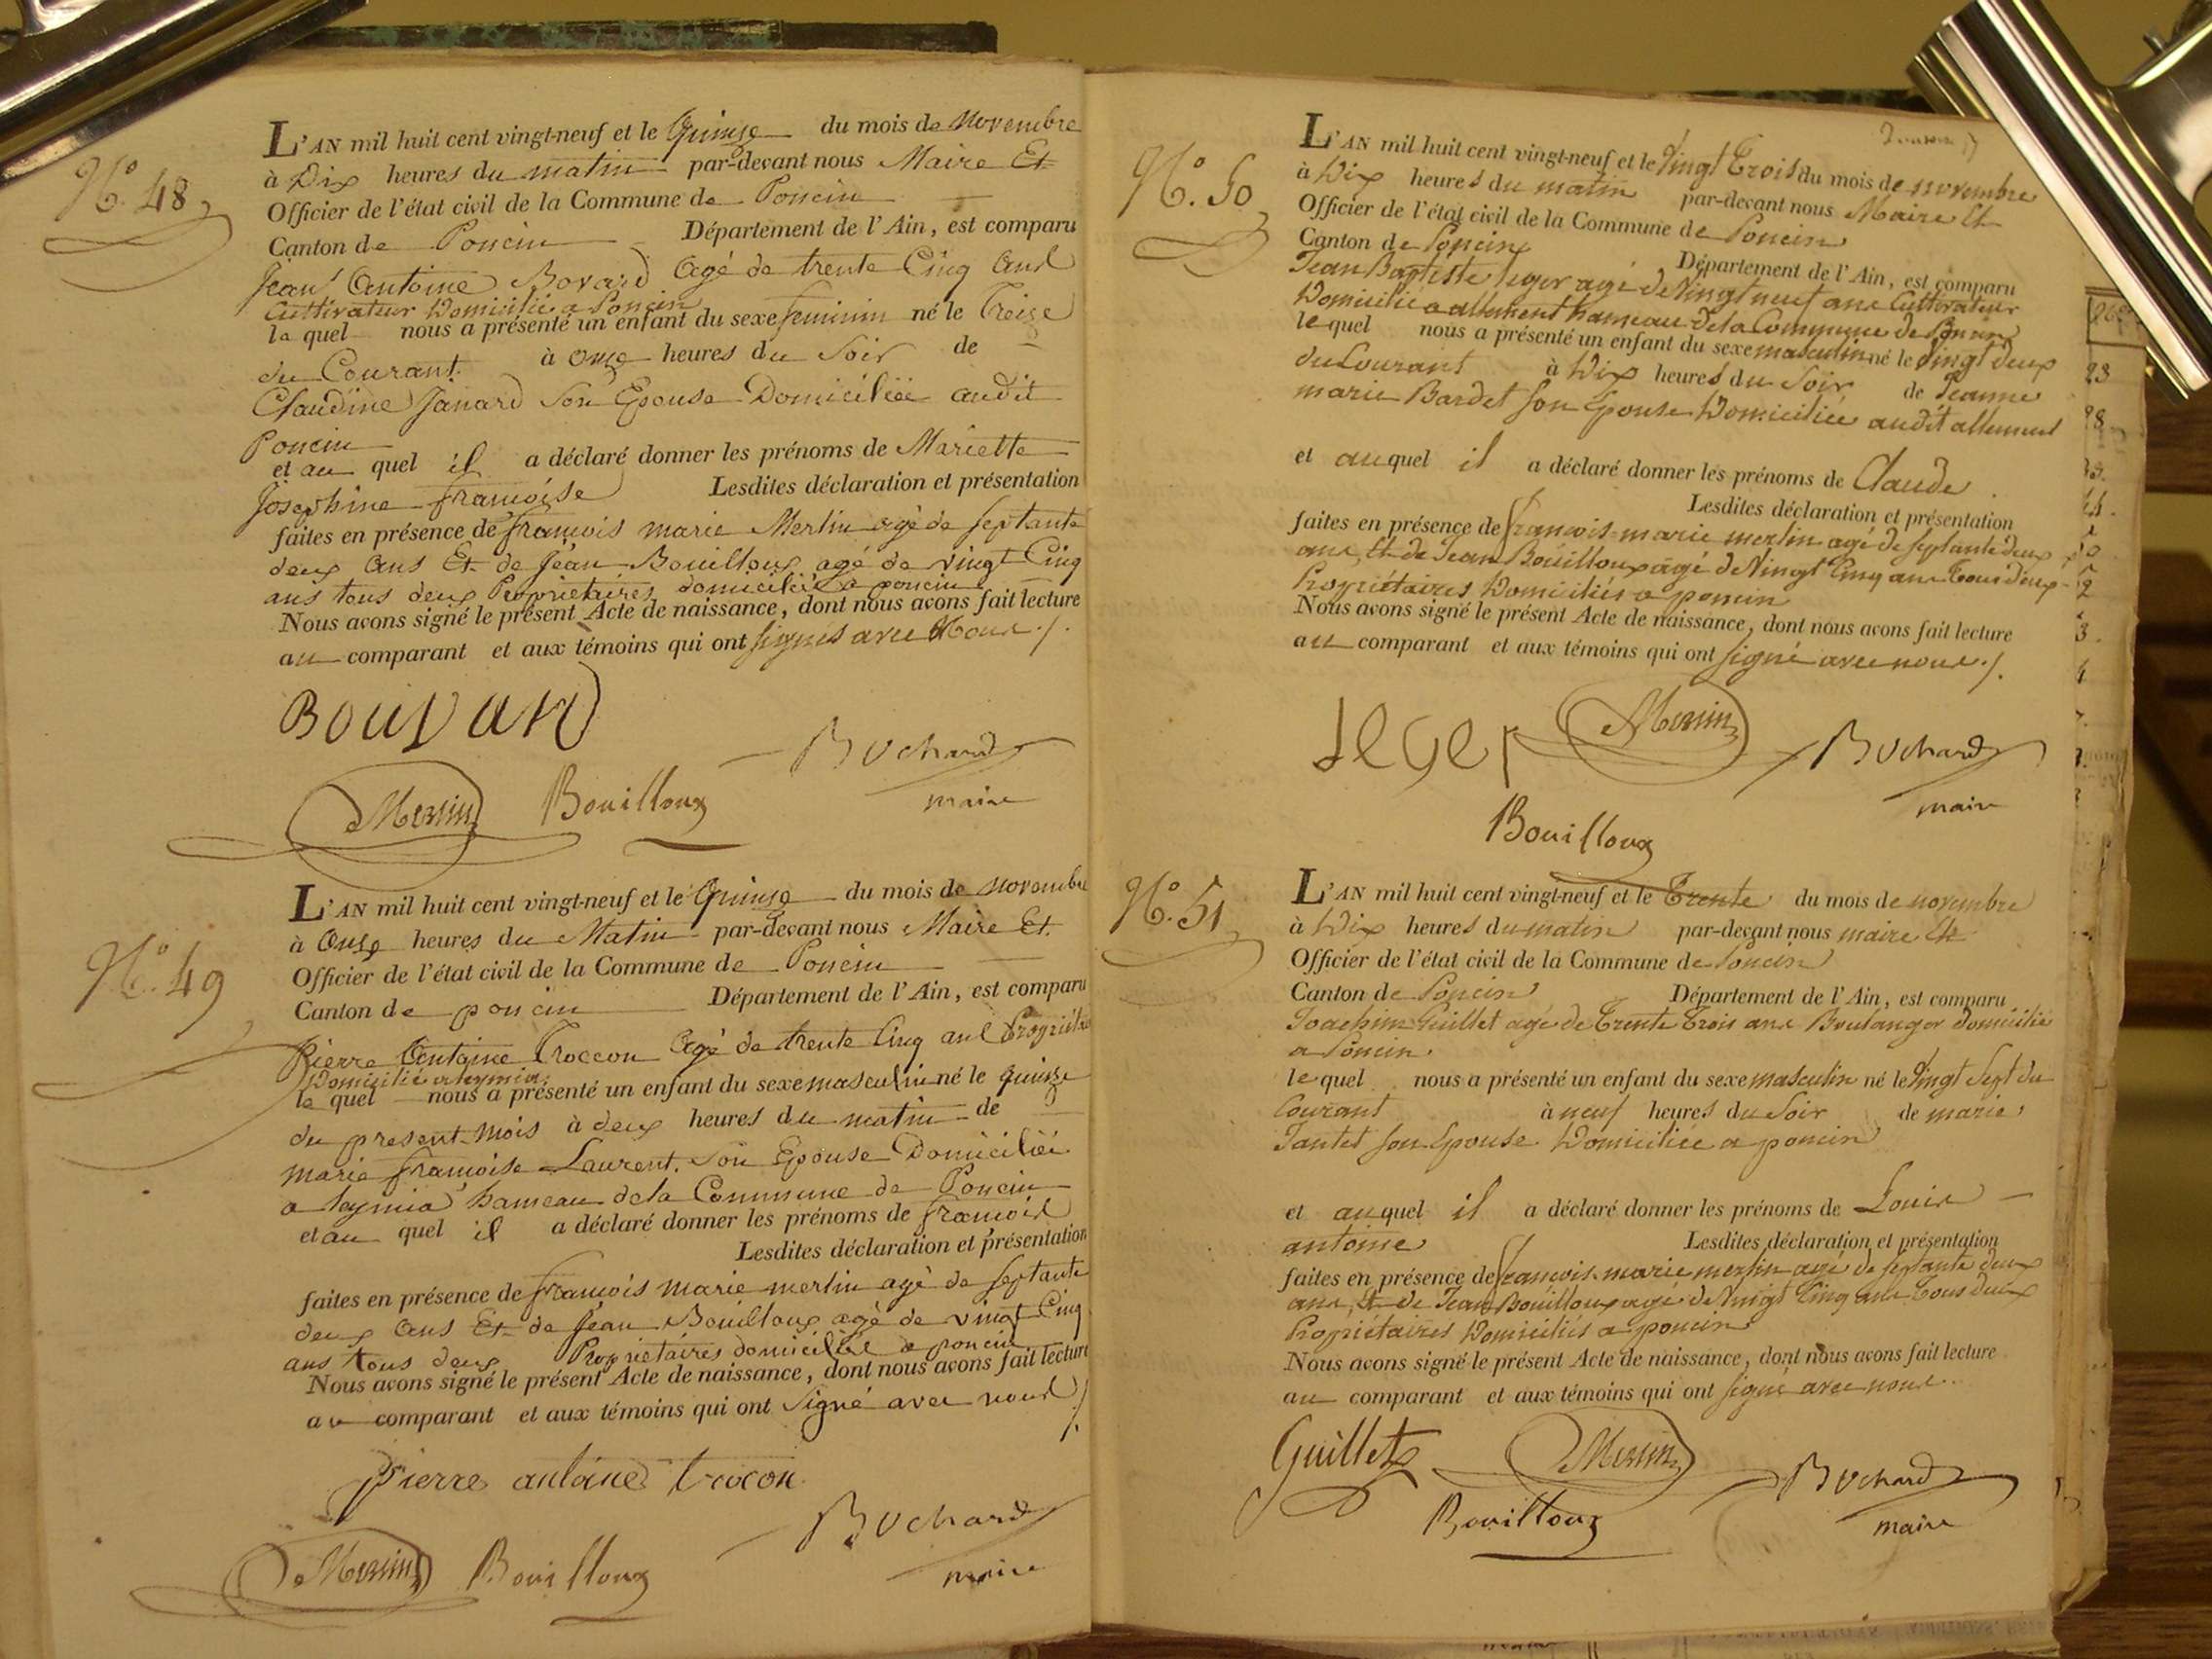 N.º 48
L'AN mil huit cent vingt-neuf et le Quinze du mois de Novembre
à Dix heures du matin par-devant nous Maire Et
Officier de l'état civil de la Commune de Poncin
Canton de Poncin Département de l'Ain, est comparu
Jean Antoine Bovard Agé de trente Cinq Ans
Cultivateur Domicilié a Poncin
le quel nous a présenté un enfant du sexe feminin né le Treize
du Courant à onze heures du Soir de
Claudine Janard Son Epouse Domiciliée audit
Poncin
et au quel il a déclaré donner les prénoms de Mariette
Josephine françoise Lesdites déclaration et présentation
faites en présence de françois marie Merlin agé de septante
deux Ans Et de Jean Bouilloux agé de vingt Cinq
ans tous deux Proprietaires domiciliés a poncin
Nous avons signé le présent Acte de naissance, dont nous avons fait lecture
au comparant et aux témoins qui ont signés avec Nous ./.
BOUVARD
Merlin Bouilloux Buchard
maire
N.º 49
L'AN mil huit cent vingt-neuf et le Quinze du mois de Novembre
à Onze heures du Matin par-devant nous Maire Et
Officier de l'état civil de la Commune de Poncin
Canton de poncin Département de l'Ain, est comparu
Pierre Antoine Troccon Agé de trente Cinq ans Propriétaire
Domicilié a leymia
le quel nous a présenté un enfant du sexe masculin né le quinze
du present Mois à deux heures du matin de
marie françoise Laurent Son Epouse Domiciliée
a leymia hameau de la Commune de Poncin
et au quel il a déclaré donner les prénoms de françois
Lesdites déclaration et présentation
faites en présence de françois marie merlin agé de septante
deux Ans Et de Jean Bouilloux agé de vingt Cinq
ans tous deux Proprietaires domiciliés a poncin
Nous avons signé le présent Acte de naissance, dont nous avons fait lecture
au comparant et aux témoins qui ont Signé avec nous ./.
pierre antoine trocon
Merlin Bouilloux Buchard
maire
N.º 50
L'AN mil huit cent vingt-neuf et le Vingt Trois du mois de novembre
à Dix heures du matin par-devant nous Maire Et
Officier de l'état civil de la Commune de Poncin
Canton de Poncin Département de l'Ain, est comparu
Jean Baptiste leger agé de Vingt neuf ans Cultivateur
Domicilié a allement hameau de la Commune de Poncin
le quel nous a présenté un enfant du sexe masculin né le Vingt deux
du Courant à Dix heures du Soir de Jeanne
marie Bardet son Epouse Domiciliée audit allement
et au quel il a déclaré donner les prénoms de Claude
Lesdites déclaration et présentation
faites en présence de françois marie merlin agé de septante deux
ans, Et de Jean Bouilloux agé de Vingt Cinq ans Tous deux
Propriétaires Domiciliés a poncin
Nous avons signé le présent Acte de naissance, dont nous avons fait lecture
au comparant et aux témoins qui ont signé avec nous ./.
leger Merlin Buchard
maire
Bouilloux
N.º 51
L'AN mil huit cent vingt-neuf et le Trente du mois de novembre
à Dix heures du matin par-devant nous maire Et
Officier de l'état civil de la Commune de Poncin
Canton de Poncin Département de l'Ain, est comparu
Joachim Guillet agé de Trente Trois ans Boulanger domicilié
a Poncin.
le quel nous a présenté un enfant du sexe masculin né le Vingt Sept du
Courant à neuf heures du Soir de marie
Tantet son Epouse Domiciliée a poncin
et au quel il a déclaré donner les prénoms de Louis
antoine Lesdites déclaration et présentation
faites en présence de françois marie merlin agé de septante deux
ans, Et de Jean Bouilloux agé de Vingt Cinq ans Tous deux
Propriétaires Domiciliés a poncin
Nous avons signé le présent Acte de naissance, dont nous avons fait lecture
au comparant et aux témoins qui ont signé avec nous.
Guillet Merlin Buchard
Bouilloux maire